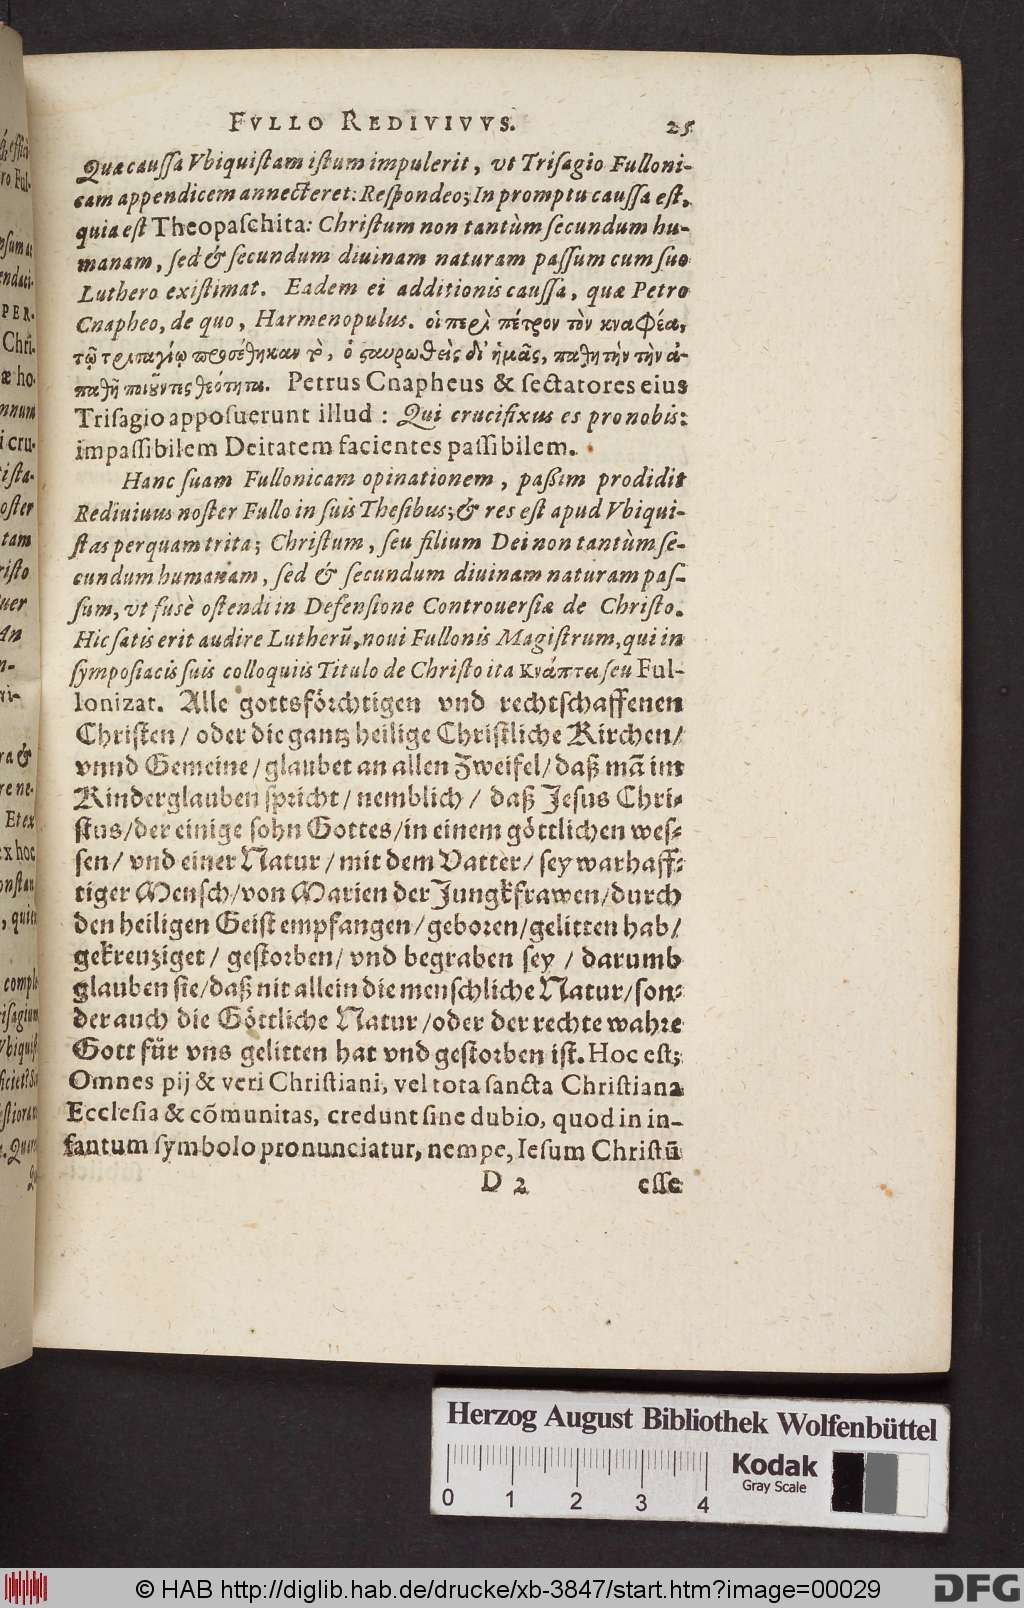 FVLLO REDIVIVVS. 25
Quæ caussa Vbiquistam istum impulerit, vt Trisagio Fulloni-
cam appendicem annecteret: Respondeo; In promptu caussa est,
quia est Theopaschita: Christum non tantùm secundum hu-
manam, sed & secundum diuinam naturam passum cum suo
Luthero existimat. Eadem ei additionis caussa, quæ Petro
Cnapheo, de quo, Harmenopulus. οἱ περὶ πέτρον τὸν κναφέα,
τῷ τρισαγίῳ προσέθηκαν τὸ, ὁ σταυρωθεὶς δι' ἡμᾶς, παθητὴν τὴν ἀ-
παθῆ ποιοῦντες θεότητα. Petrus Cnapheus & sectatores eius
Trisagio apposuerunt illud: Qui crucifixus es pro nobis:
impassibilem Deitatem facientes passibilem.
Hanc suam Fullonicam opinationem, paßim prodidit
Rediuiuus noster Fullo in suis Thesibus; & res est apud Vbiqui-
stas perquam trita; Christum, seu filium Dei non tantùm se-
cundum humanam, sed & secundum diuinam naturam pas-
sum, vt fusè ostendi in Defensione Controuersiæ de Christo.
Hic satis erit audire Lutherū, noui Fullonis Magistrum, qui in
symposiacis suis colloquiis Titulo de Christo ita κνάπτει seu Ful-
lonizat. Alle gottsförchtigen vnd rechtschaffenen
Christen / oder die gantz heilige Christliche Kirchen /
vnnd Gemeine / glaubet an allen Zweifel / daß mā im
Kinderglauben spricht / nemblich / daß Jesus Chri-
stus / der einige sohn Gottes / in einem göttlichen wes-
sen / vnd einer Natur / mit dem Vatter / sey warhaff-
tiger Mensch / von Marien der Jungkfrawen / durch
den heiligen Geist empfangen / geboren / gelitten hab /
gekreuziget / gestorben / vnd begraben sey / darumb
glauben sie / daß nit allein die menschliche Natur / son-
der auch die Göttliche Natur / oder der rechte wahre
Gott für vns gelitten hat vnd gestorben ist. Hoc est;
Omnes pij & veri Christiani, vel tota sancta Christiana
Ecclesia & cōmunitas, credunt sine dubio, quod in in-
fantum symbolo pronunciatur, nempe, Iesum Christū
D 2 esse
Herzog August Bibliothek Wolfenbüttel
0 1 2 3 4
Kodak
Gray Scale
© HAB http://diglib.hab.de/drucke/xb-3847/start.htm?image=00029
DFG